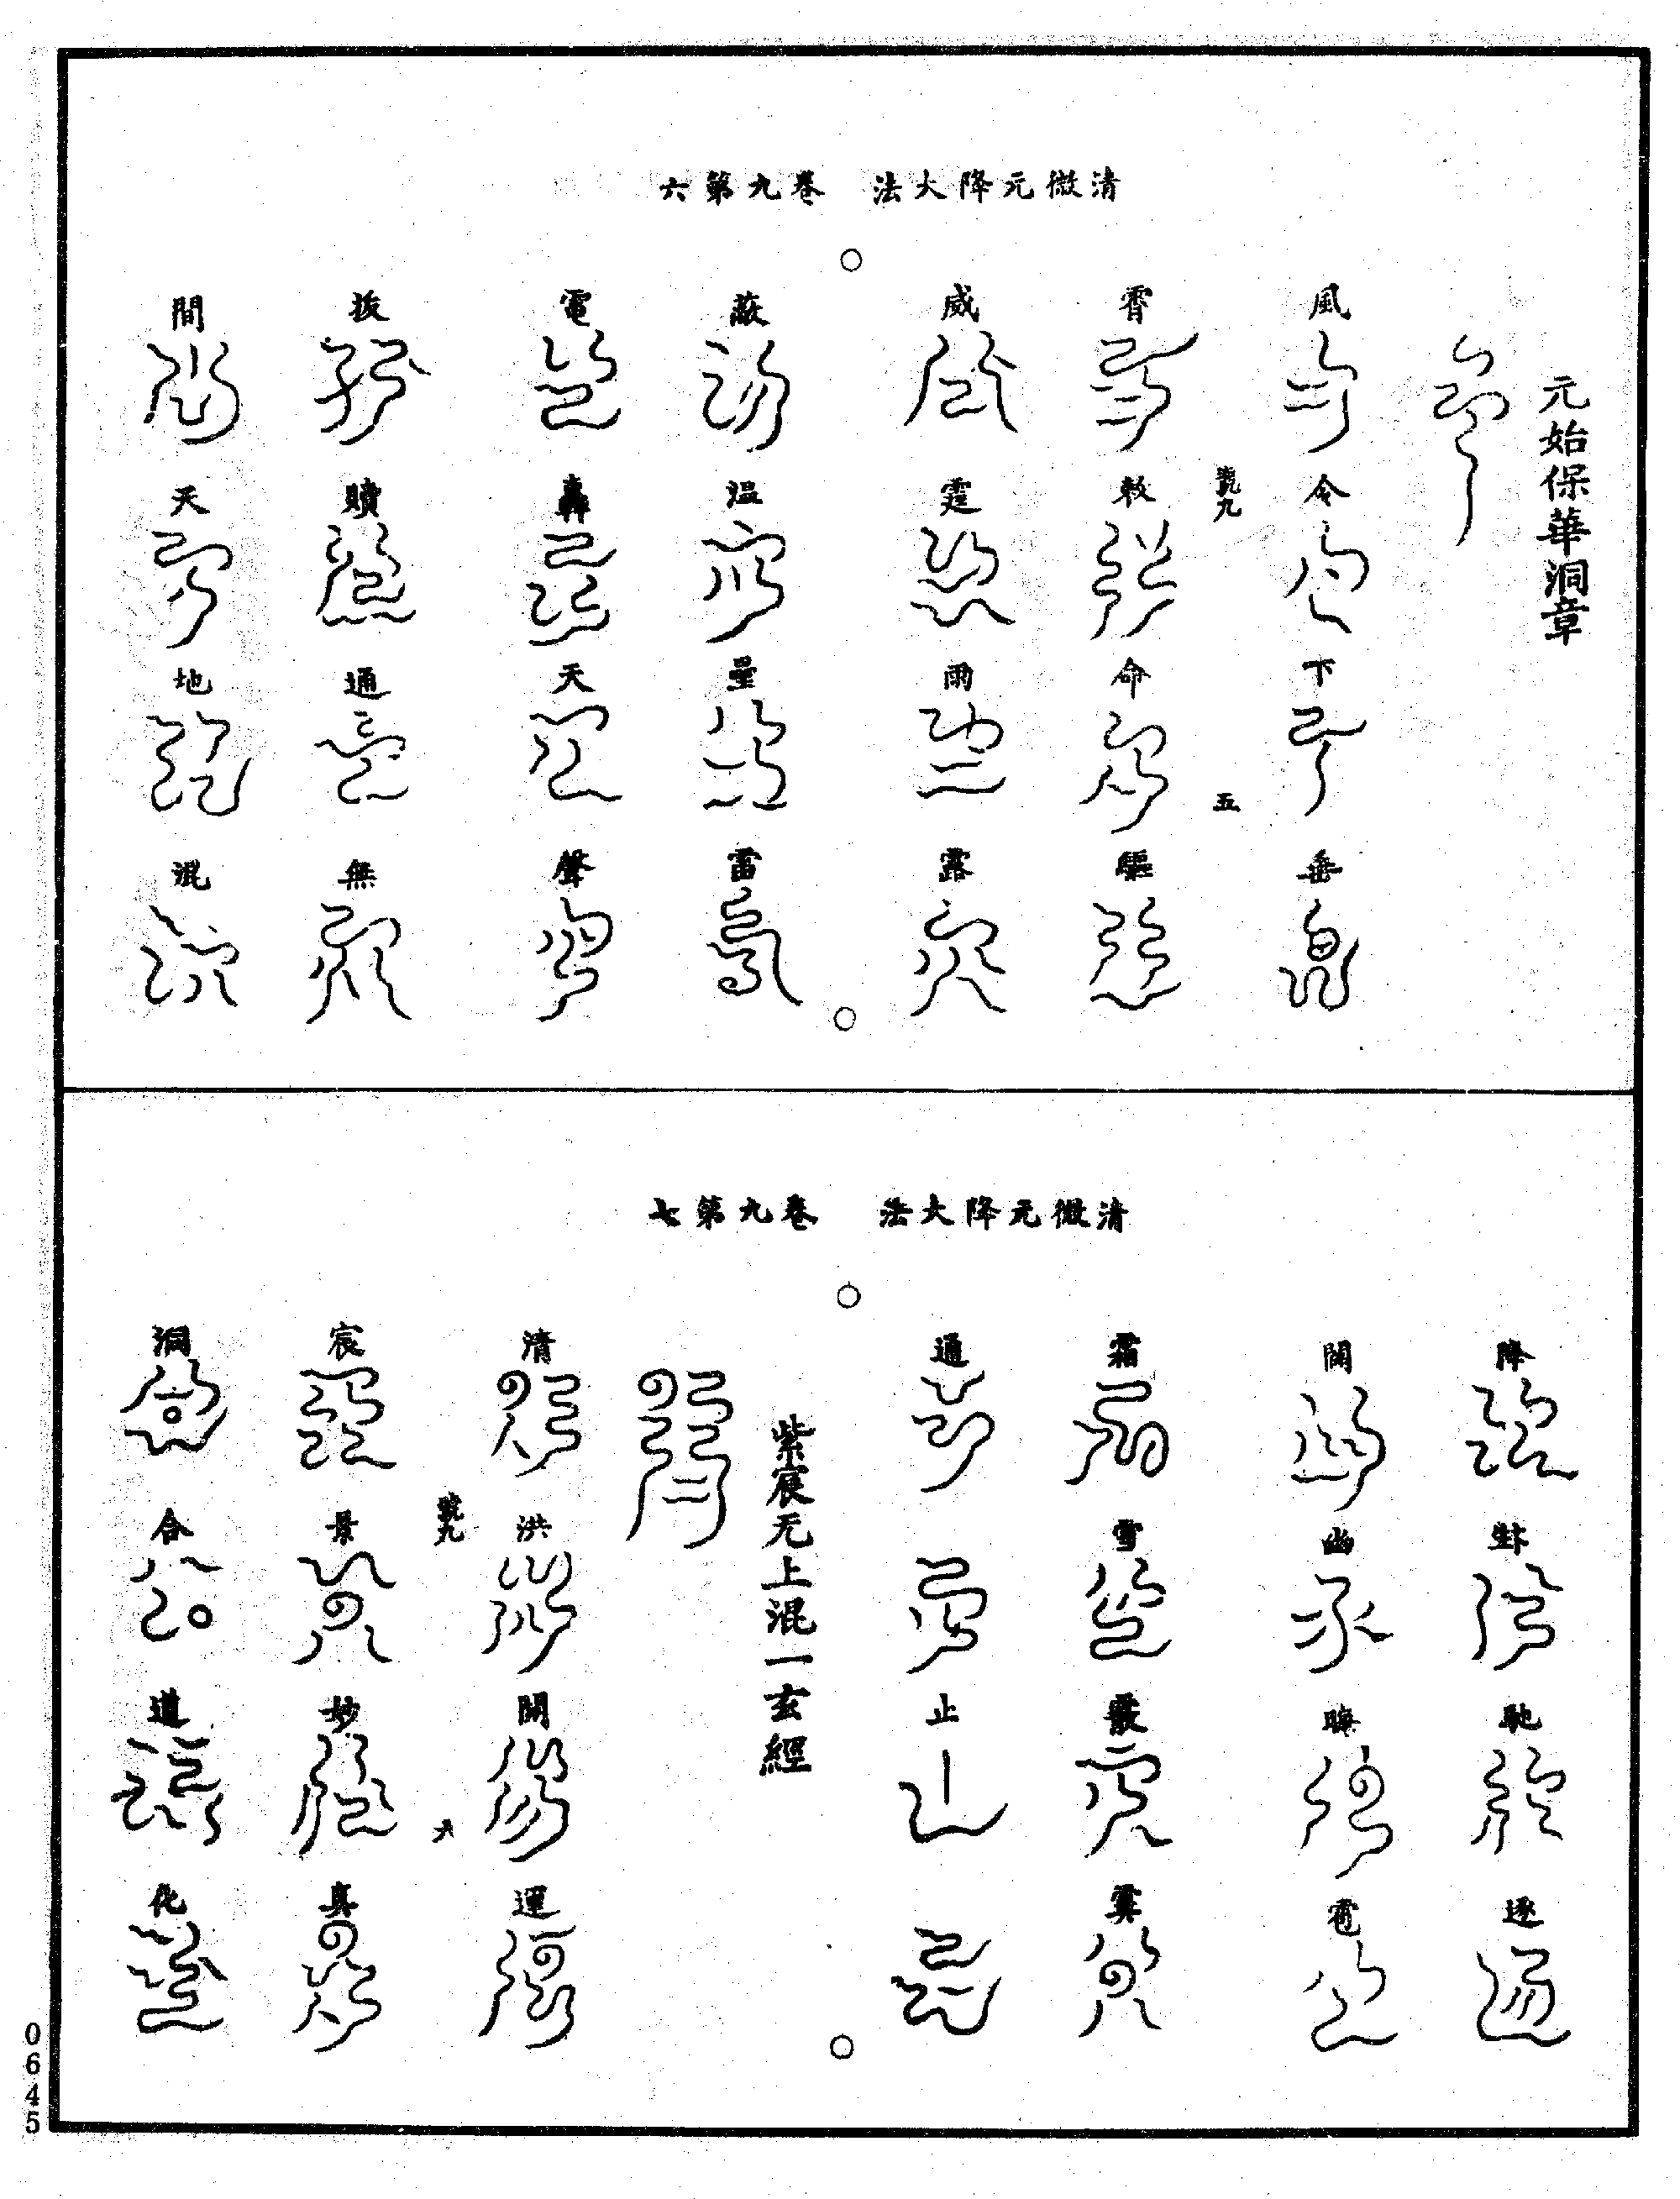 清微元降大法　卷九第六
元始保華洞章
風令下垂
號九　五
霄敕命驅
威霆雨露
蔽溫量雷
電轟天聲
拔贖通無
間天地混
清微元降大法　卷九第七
降　馳逐
開幽晦雹
霜雪霰霙
通　止
紫宸元上混一玄經
清洪開運
號九　六
宸景妙真
洞合道化
0645